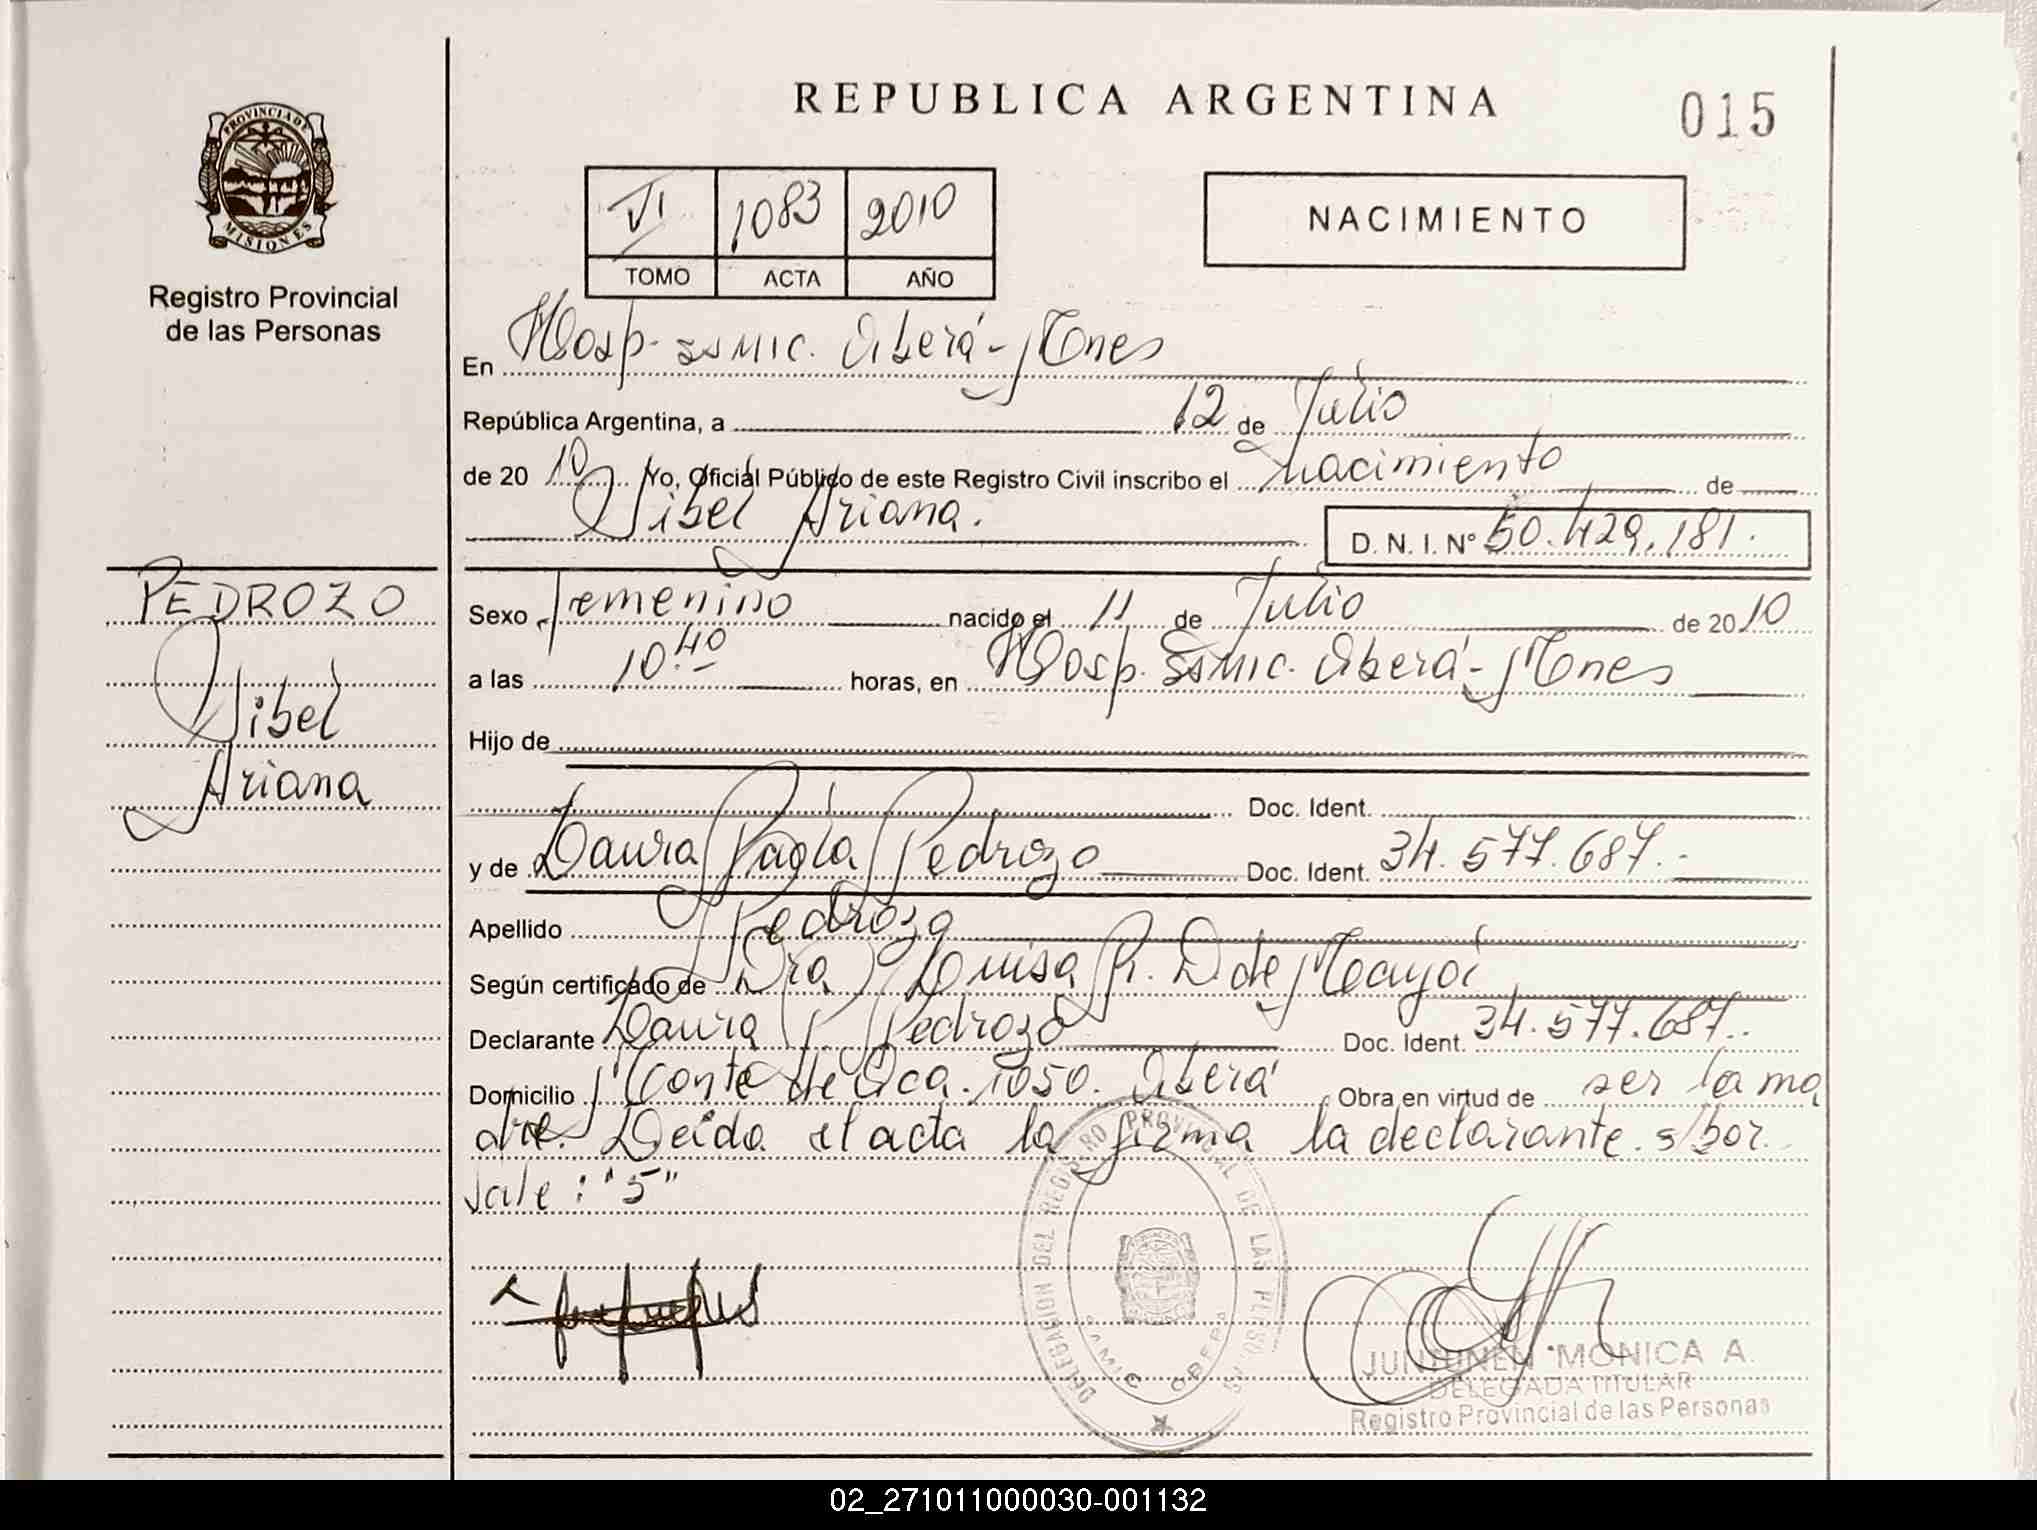 REPUBLICA ARGENTINA
015
PROVINCIA DE
MISIONES
Registro Provincial
de las Personas
VI 1083 2010
TOMO ACTA AÑO
NACIMIENTO
En Hosp. SAMIC. Oberá - Mnes
República Argentina, a 12 de Julio
de 20 10 Yo, Oficial Público de este Registro Civil inscribo el nacimiento de
Ariana.
D. N. I. Nº 50.429.181.
PEDROZO
Ariana
Sexo Femenino nacido el 11 de Julio de 2010
a las 10.40 horas, en Hosp. SAMIC. Oberá - Mnes
Hijo de
Doc. Ident.
y de Laura Paola Pedrozo Doc. Ident. 34.577.687.-
Apellido Pedrozo
Según certificado de Dra Luisa R. D de
Declarante Laura P. Pedrozo Doc. Ident. 34.577.687..
Domicilio Monte de Oca. 1050. Oberá Obra en virtud de ser la ma
dre. Leída el acta la firma la declarante. s/bor.
vale: "5"
DELEGACION DEL REGISTRO PROVINCIAL DE LAS PERSONAS
SAMIC OBERA
MONICA A.
DELEGADA TITULAR
Registro Provincial de las Personas
02_271011000030-001132